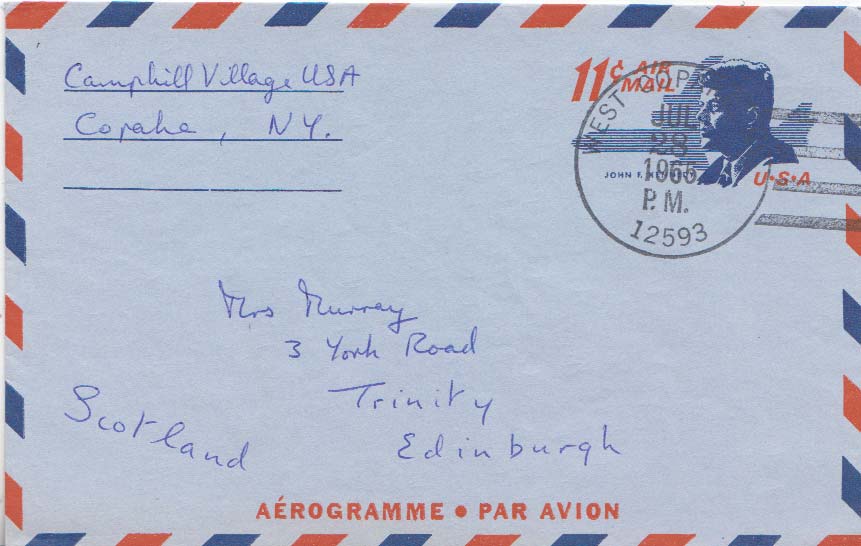 Camphill Village USA
Copake, NY.
11¢ AIR MAIL
JOHN F. KENNEDY
U·S·A
WEST COPAKE
JUL
28
1965
P.M.
12593
Mrs Murray
3 York Road
Trinity
Edinburgh
Scotland
AÉROGRAMME • PAR AVION